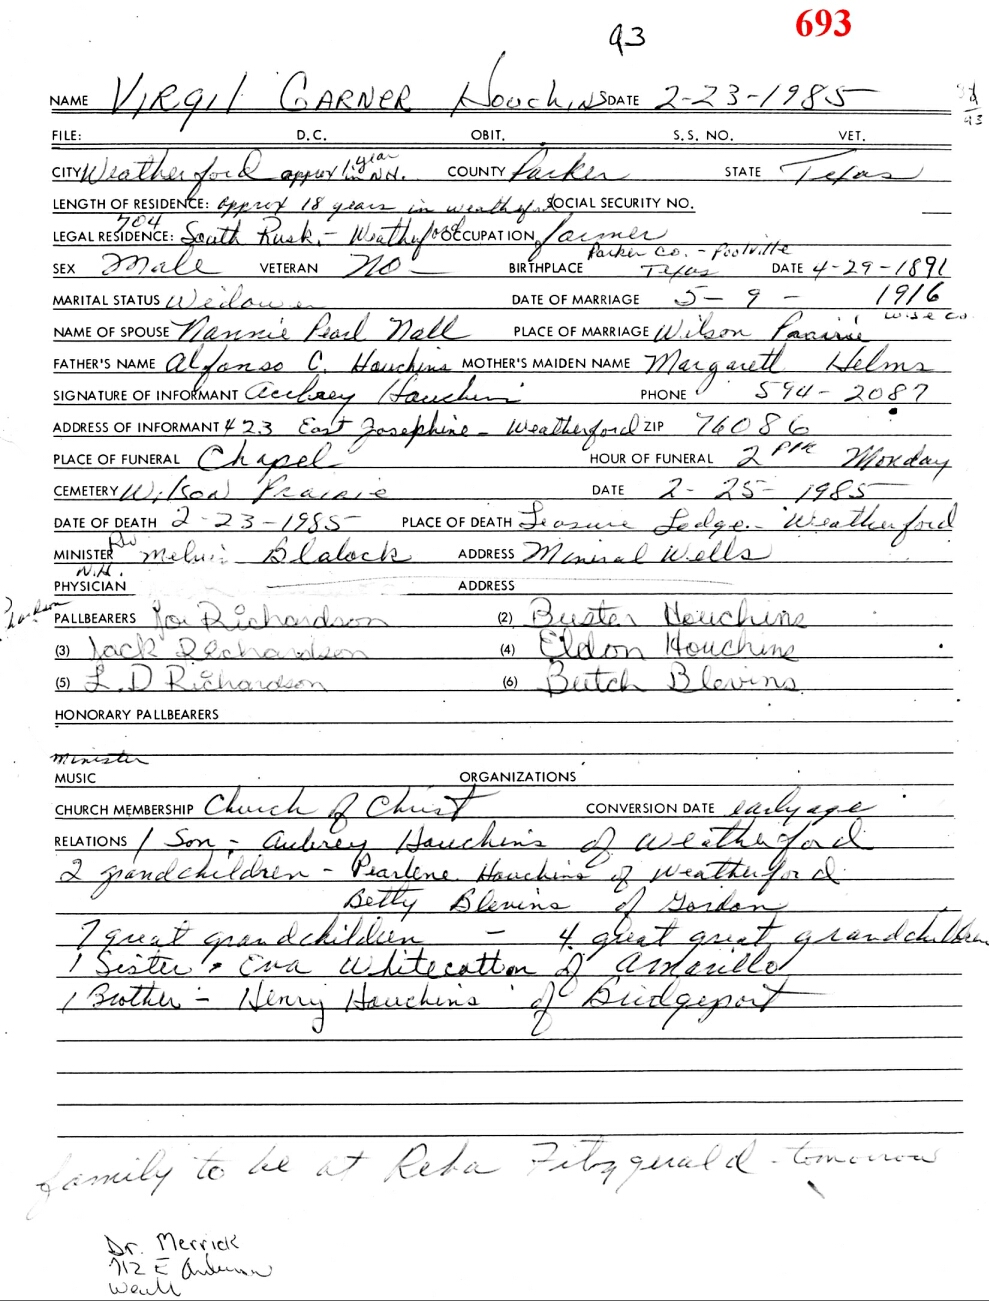 93 693
NAME Virgil Garner Houchins DATE 2-23-1985
93
FILE: D.C. OBIT. S.S. NO. VET.
CITY Weatherford approx 1 year in N.H. COUNTY Parker STATE Texas
LENGTH OF RESIDENCE: approx 18 years in weatherf. SOCIAL SECURITY NO.
LEGAL RESIDENCE: 704 South Rusk - Weatherford OCCUPATION farmer
SEX Male VETERAN NO BIRTHPLACE Parker Co. - Poolville Texas DATE 4-29-1891
MARITAL STATUS Widower DATE OF MARRIAGE 5-9-1916
NAME OF SPOUSE Nannie Pearl Nall PLACE OF MARRIAGE Wilson Prairie Wise Co.
FATHER'S NAME Alfonso C. Houchins MOTHER'S MAIDEN NAME Margarett Helms
SIGNATURE OF INFORMANT Aubrey Houchins PHONE 594-2087
ADDRESS OF INFORMANT 423 East Josephine - Weatherford ZIP 76086
PLACE OF FUNERAL Chapel HOUR OF FUNERAL 2 PM Monday
CEMETERY Wilson Prairie DATE 2-25-1985
DATE OF DEATH 2-23-1985 PLACE OF DEATH Leasure Lodge - Weatherford
MINISTER Melvin Blalock ADDRESS Mineral Wells
N.H.
PHYSICIAN ADDRESS
PALLBEARERS Joe Richardson (2) Buster Houchins
(3) Jack Richardson (4) Eldon Houchins
(5) L.D Richardson (6) Butch Blevins
HONORARY PALLBEARERS
minister
MUSIC ORGANIZATIONS
CHURCH MEMBERSHIP Church of Christ CONVERSION DATE early age
RELATIONS 1 Son - Aubrey Houchins of Weatherford
2 grandchildren - Pearlene Houchins of Weatherford
Betty Blevins of Gordon
7 great grandchildren - 4 great great grandchildren
1 Sister - Eva Whitecotton of Amarillo
1 Brother - Henry Houchins of Bridgeport
family to be at Reba Fitzgerald - tomorrow
Dr. Merrick
712 E Anderson
Weath